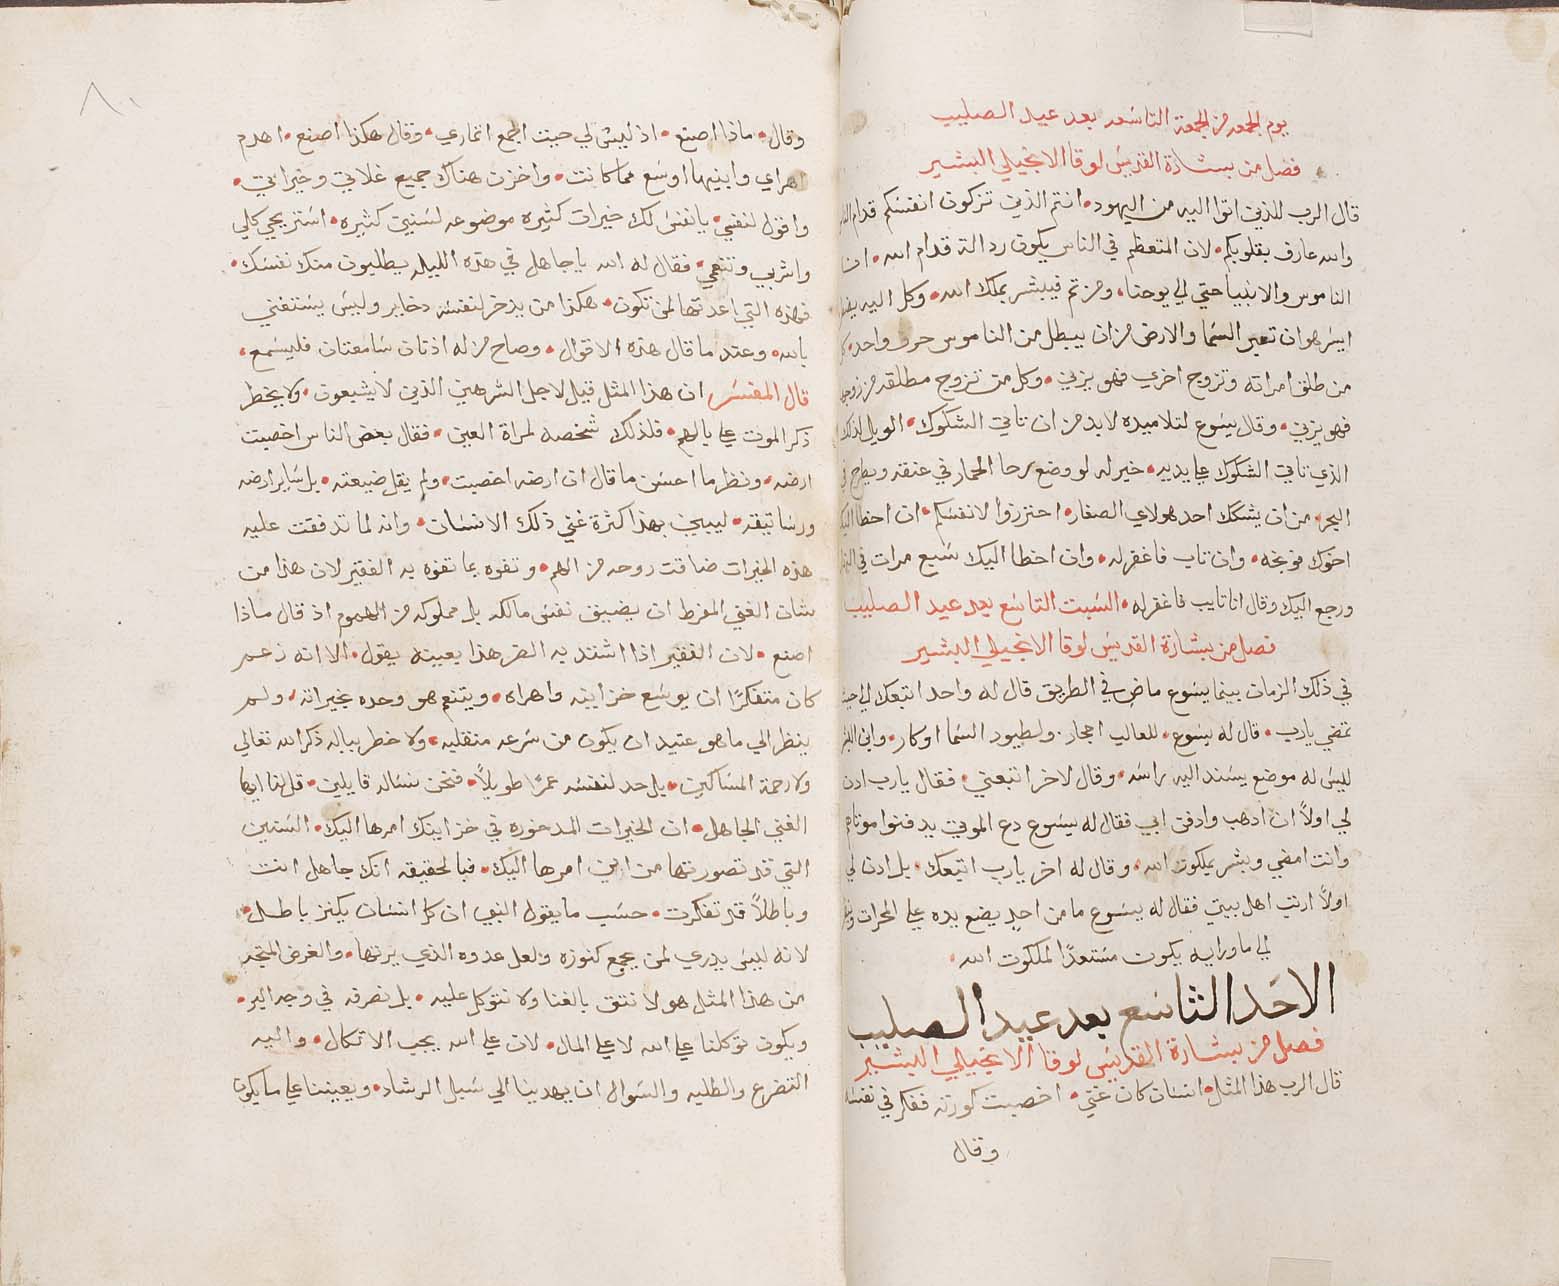 يوم الجمعه من الجمعة التاسعه بعد عيد الصليب
فصل من بشارة القديس لوقا الانجيلي البشير
قال الرب للذين اتوا اليه من اليهود انتم الذين تزكون انفسكم قدام الناس
والله عارف بقلوبكم لان المتعظم في الناس يكون ردالة قدام الله ان
الناموس والانبيا حتي الي يوحنا ومن تم فيبشر بملك الله وكل اليه
ايسر هوان تعبر السما والارض من ان يبطل من الناموس حرف واحد كل
من طلق امراته وتزوج اخري فهو يزني وكل من تزوج مطلقه من زوجها
فهو يزني وقال يسوع لتلاميده لابد من ان تاتي الشكوك الويل لذلك
الذي تاتي الشكوك علي يديه خير له لو وضع رحا الحمار في عنقه ويطرح في
البحر من ان يشكك احد هولاي الصغار احترزوا لانفسكم ان اخطا اليك
اخوك فوبخه وان تاب فاغفر له وان اخطا اليك سبع مرات في النهار
ورجع اليك وقال انا تايب فاغفر له السبت التاسع بعد عيد الصليب
فصل من بشارة القديس لوقا الانجيلي البشير
في ذلك الزمان بينما يسوع ماض في الطريق قال له واحد اتبعك الي حيث
تمضي يارب قال له يسوع للعالب احجار ولطيود السما اوكار وابن البشر
ليس له موضع يسند اليه راسه وقال لاخر اتبعني فقال يارب ادن
لي اولاً ان ادهب وادفن ابي فقال له يسوع دع الموتي يدفنوا موتاهم
وانت امضي وبشر بملكوت الله وقال له اخر يارب اتبعك بل ادن لي
اولاً ارتب اهل بيتي فقال له يسوع ما من احدٍ يضع يده علي المحرات
الي ما ورايه يكون مستعدًا لملكوت الله
الاحد التاسع بعد عيد الصليب
فصل من بشارة القديس لوقا الانجيلي البشير
قال الرب هذا المثل انسان كان غني اخصبت كورته ففكر في نفسه
وقال
٨٠
وقال ماذا اصنع اذ ليس لي حيت اجمع اتماري وقال هكذا اصنع اهدم
اهراي وابنيها اوسع مما كانت واخزن هناك جميع غلاتي وخيراتي
واقول لنفسي يا نفس لك خيرات كثيره موضوعه لسنين كثيره استريحي كلي
واشربي وتنعمي فقال له الله يا جاهل في هذه الليله يطلبون منك نفسك
فهذه التي اعددتها لمن تكون هكذا من يذخر لنفسه دخاير وليس يستغني
بالله وعند ما قال هذه الاقوال وصاح من له اذنان سامعتان فليسمع
قال المفسر ان هذا المثل قيل لاجل الشرهين الذين لا يشبعون ولا يخطر
ذكر الموت علي بالهم فلذلك شخصه لمراة العين فقال بعض الناس اخصبت
ارضه ونظر ما احسن ما قال ان ارضه اخصبت ولم يقل ضيعته بل ساير ارضه
ورساتيقه ليبين بهذا كثرة غني ذلك الانسان وانه لما تدفقت عليه
هذه الخيرات ضاقت روحه من الهم وتفوه بما تفوه به الفقير لان هذا من
شان الغني المفرط ان يضيق نفس مالكه بل مملوكه من الهموم اذ قال ماذا
اصنع لان الفقير اذا اشتد به الضر هذا بعينه يقول الا انه زعم
كان متفكرًا ان يوسع خزاينه واهراه ويتنعم هو وحده بخيراته ولم
ينظر الي ما هو عتيد ان يكون من سرعه منقلبه ولا خطر بباله ذكر الله تعالي
ولا رحمة المساكين بل حد لنفسه عمرًا طويلاً فنحن نساله قايلين قل لنا ايها
الغني الجاهل ان الخيرات المدخوره في خزاينك امرها اليك السنين
التي قد تصورتها من اين امرها اليك فبالحقيقه انك جاهل انت
وباطلاً قد تفكرت حسب ما يقول النبي ان كل انسان يكنز باطل
لانه ليس يدري لمن يجمع كنوزه ولعل عدوه الذي يرتها والغرض المتجه
من هذا المثل هو لا نتق بالغنا ولا نتوكل عليه بل نصرفه في وجه البر
ويكون توكلنا علي الله لا علي المال لان علي الله يجب الاتكال واليه
التضرع والطلبه والسوال ان يهدينا الي سبل الرشاد ويعيننا علي ما يكون